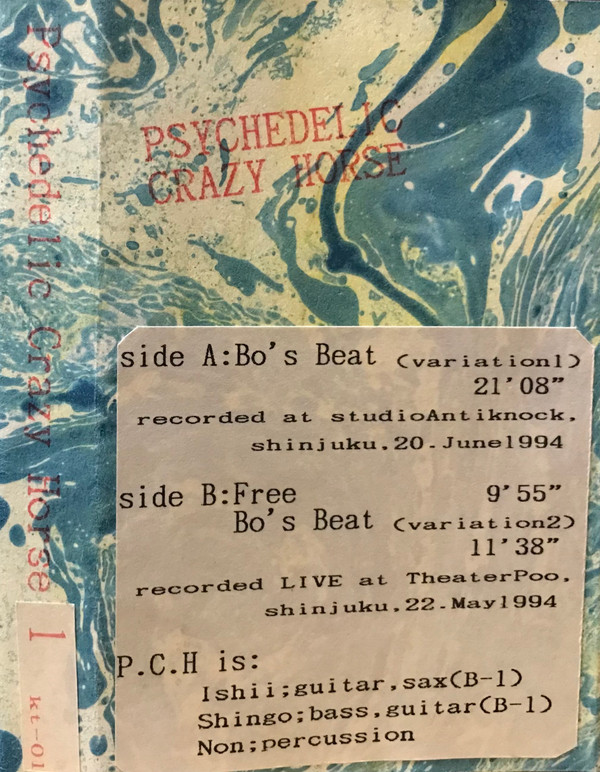 Psychedelic Crazy Horse 1
kt-01
PSYCHEDELIC
CRAZY HORSE
side A:Bo's Beat (variation1)
21'08"
recorded at studioAntiknock,
shinjuku.20-June1994
side B:Free 9'55"
Bo's Beat (variation2)
11'38"
recorded LIVE at TheaterPoo,
shinjuku.22-May1994
P.C.H is:
Ishii;guitar,sax(B-1)
Shingo;bass,guitar(B-1)
Non;percussion